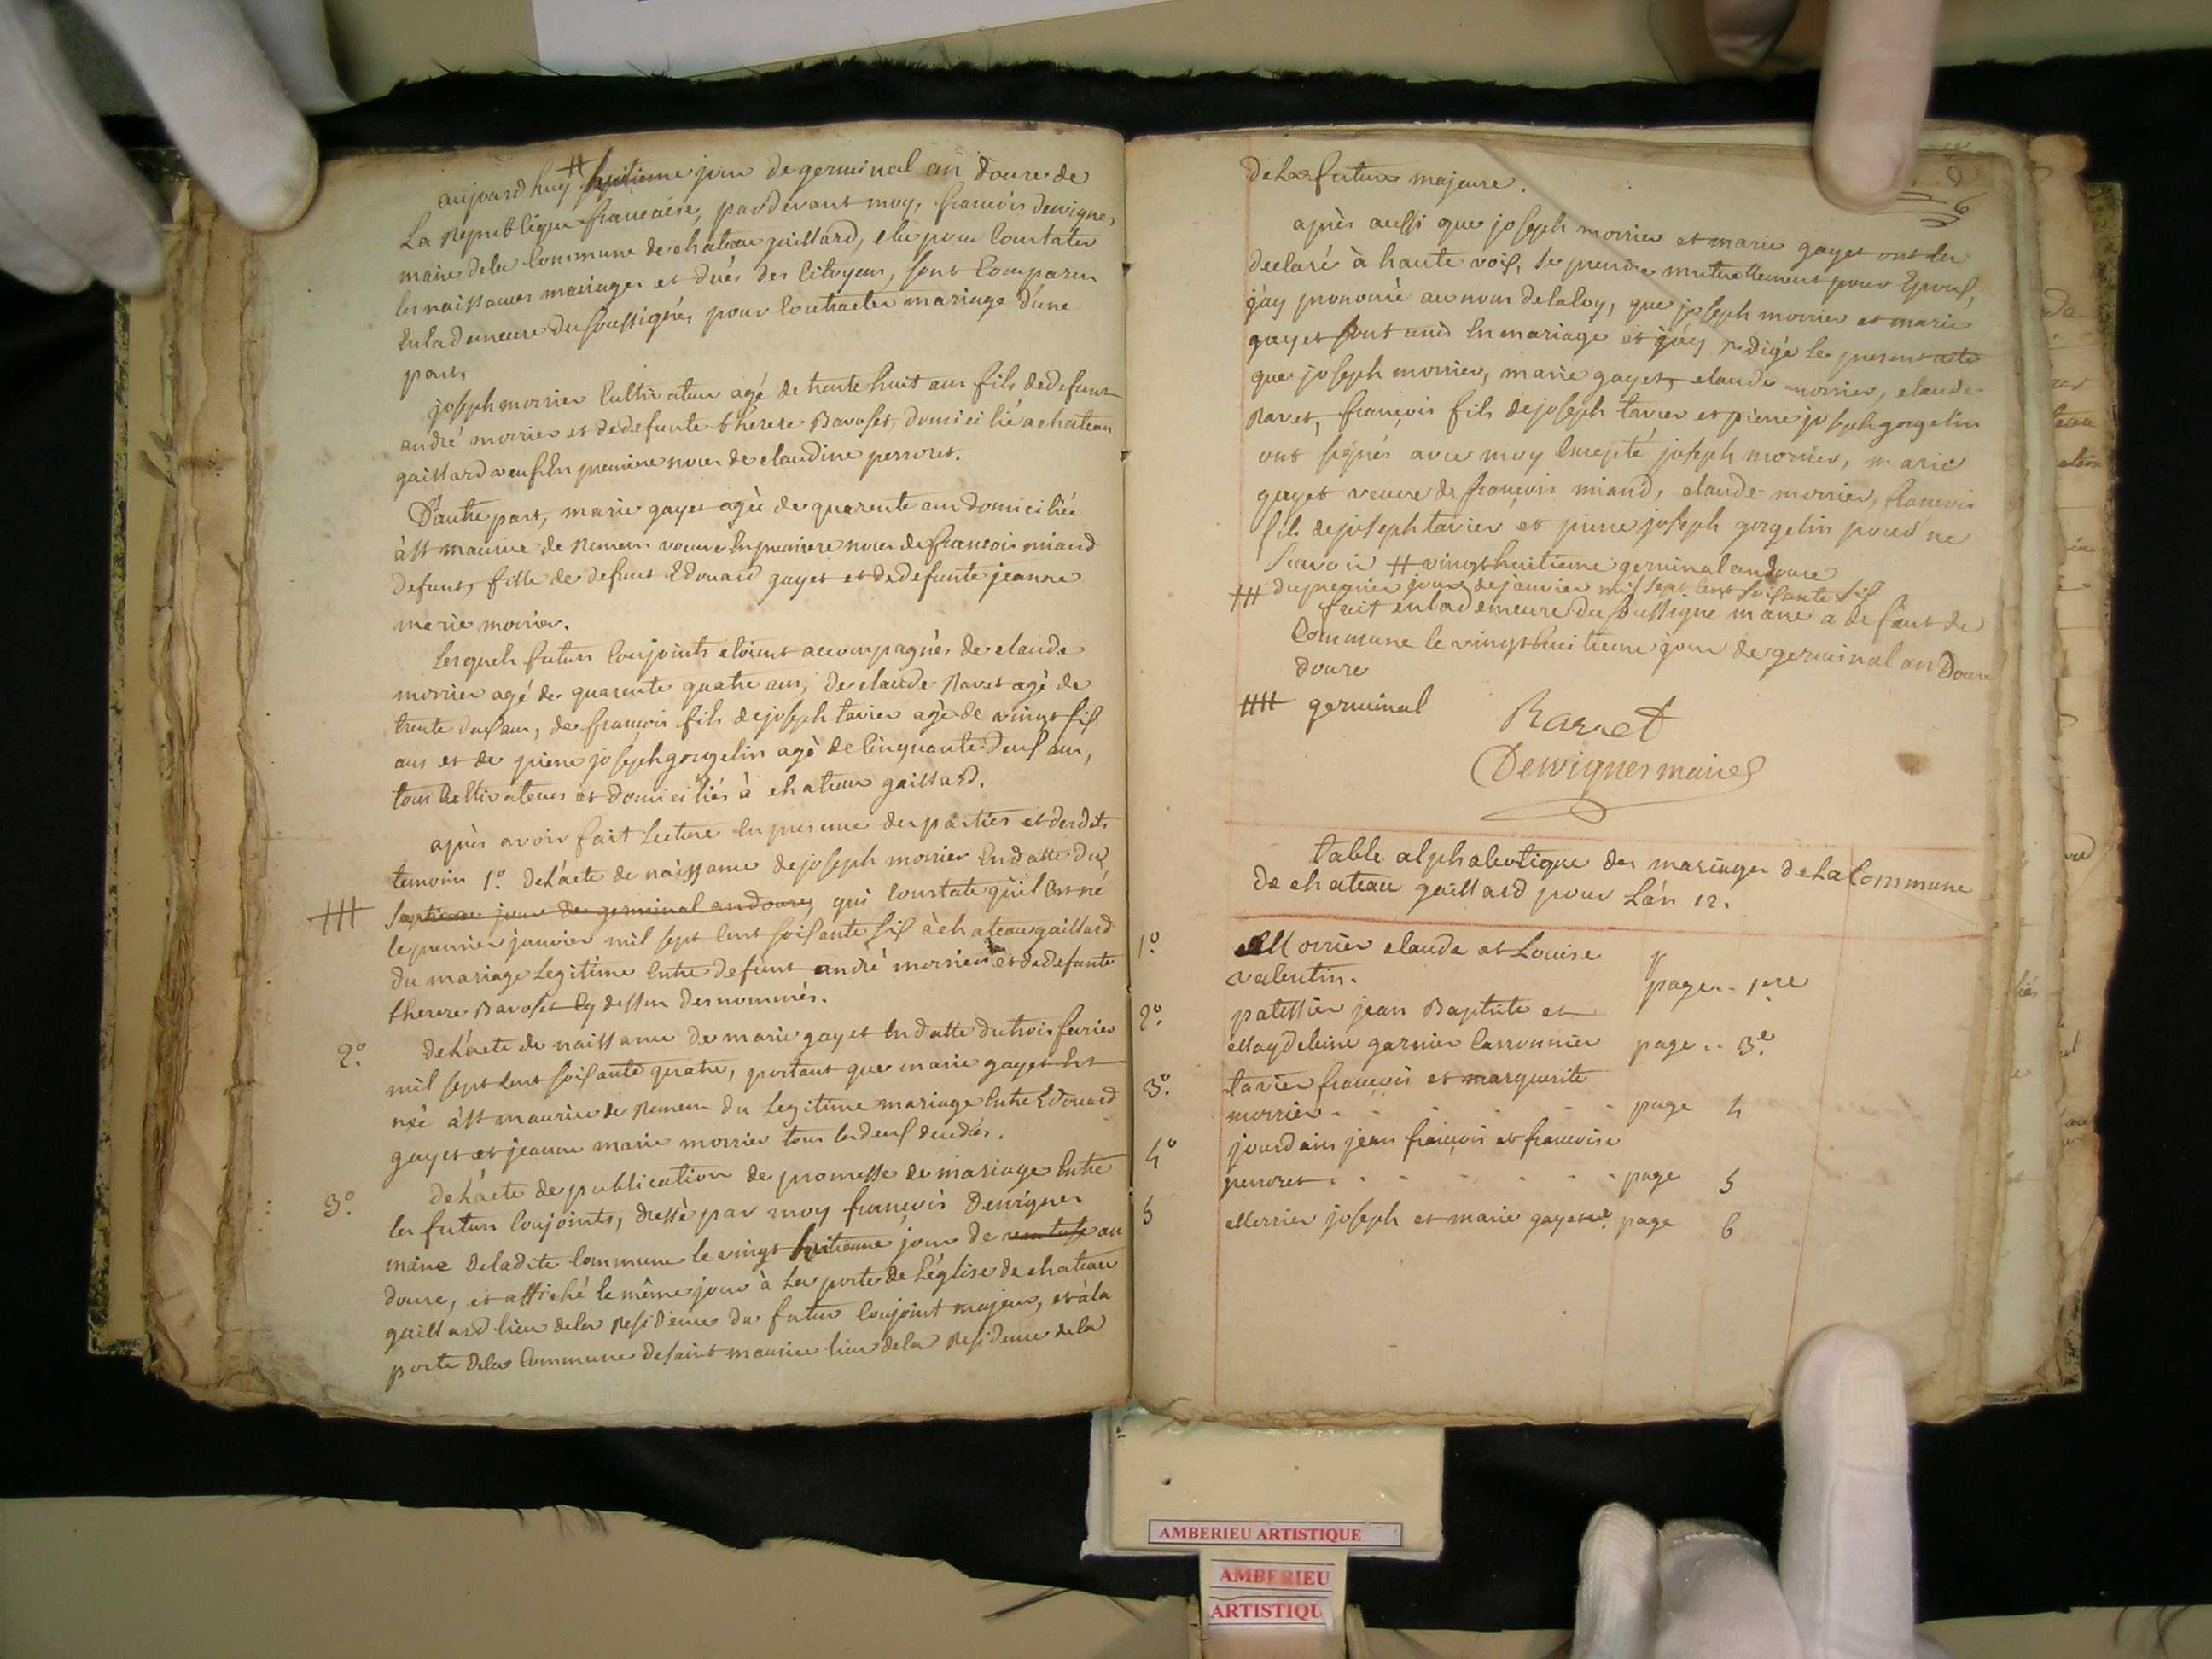 aujourd'huy # huitieme jour de germinal an douze de
La Republique francaise, pardevant moy, francois Dewignes
maire dela commune de chateau gaillard, elu pour constater
les naissances mariages et deces des citoyens, sont comparus
en la demeure du soussignés pour contracter mariage d'une
part,
joseph morrier cultivateur agé de trente huit ans fils dedefunt
andré morrier et dedefunte therese Bavoset, domicilié a chateau
gaillard veuf en premiere noces de claudine perroset.
D'autre part, marie gayet agée de quarente ans domiciliée
à st maurice de Remens veuve en premiere noces de francois miand
defunt, fille de defunt Edouard gayet et dedefunte jeanne
marie morrier.
Lesquels futurs conjoints etoient accompagnés de claude
morrier agé de quarente quatre ans, de claude Ravet agé de
trente deux ans, de francois fils de joseph tavier agé de vingt six
ans et de pierre joseph gorgelin agé de cinquante deux ans,
tous cultivateurs et domiciliés à chateau gaillard.
après avoir fait lecture en presence des parties et desdits
temoins 1º. de L'acte de naissance de joseph morrier en datte du
## septieme jour de germinal an douze, qui constate qu'il est né
le premier janvier mil sept cent soixante six à chateau gaillard
du mariage Legitime entre defunt andré morrier et dedefunte
therese Bavoset cy dessus denommés.
2º. de L'acte de naissance de marie gayet en datte du trois fevrier
mil sept cent soixante quatre, portant que marie gayet est
née à st maurice de Remens du Legitime mariage entre Edouard
gayet et jeanne marie morrier tous les deux decedés.
3º. de L'acte de publication de promesse de mariage entre
les futurs conjoints, dressé par moy françois Dewignes
maire deladite commune le vingt huitieme jour de ventose an
douze, et affiché le même jour à la porte de L'église de chateau
gaillard lieu dela residence du futur conjoint majeur, et à la
porte dela commune de saint maurice lieu dela residence dela
dela future majeure.
6
après aussi que joseph morrier et marie gayet ont eu
declaré à haute voix, se prendre mutuellement pour Epoux,
j'ay prononcé au nom de la loy, que joseph morrier et marie
gayet sont unis en mariage et j'ay redigé le present acte
que joseph morrier, marie gayet, claude morrier, claude
Ravet, françois fils de joseph tavier et pierre joseph gorgelin
ont signés avec moy Excepté joseph morrier, marie
gayet veuve de françois miand, claude morrier, francois
fils de joseph tavier et pierre joseph gorgelin pour ne
scavoir # vingt huitieme germinal an douze
## du premier jour de janvier mil sept cent soixante six
fait en la demeure du soussigné maire a defaut de
commune le vingt huitieme jour de germinal an Douze
douze
### germinal
Ravet
Dewignes maire
table alphabetique des mariages de La Commune
de chateau gaillard pour L'an 12.
1º. Morrier claude et Louise
valentin. page .. 1re
2º. patissier jean Baptiste et
Magdeleine garnier carronnier page .. 3.e
3º. tavier françois et marguerite
morrier . . . . . page 4
4º jourdain jean françois et francoise
perroset . . . . . page 5
5 Morrier joseph et marie gayet page 6
AMBERIEU ARTISTIQUE
AMBERIEU
ARTISTIQU